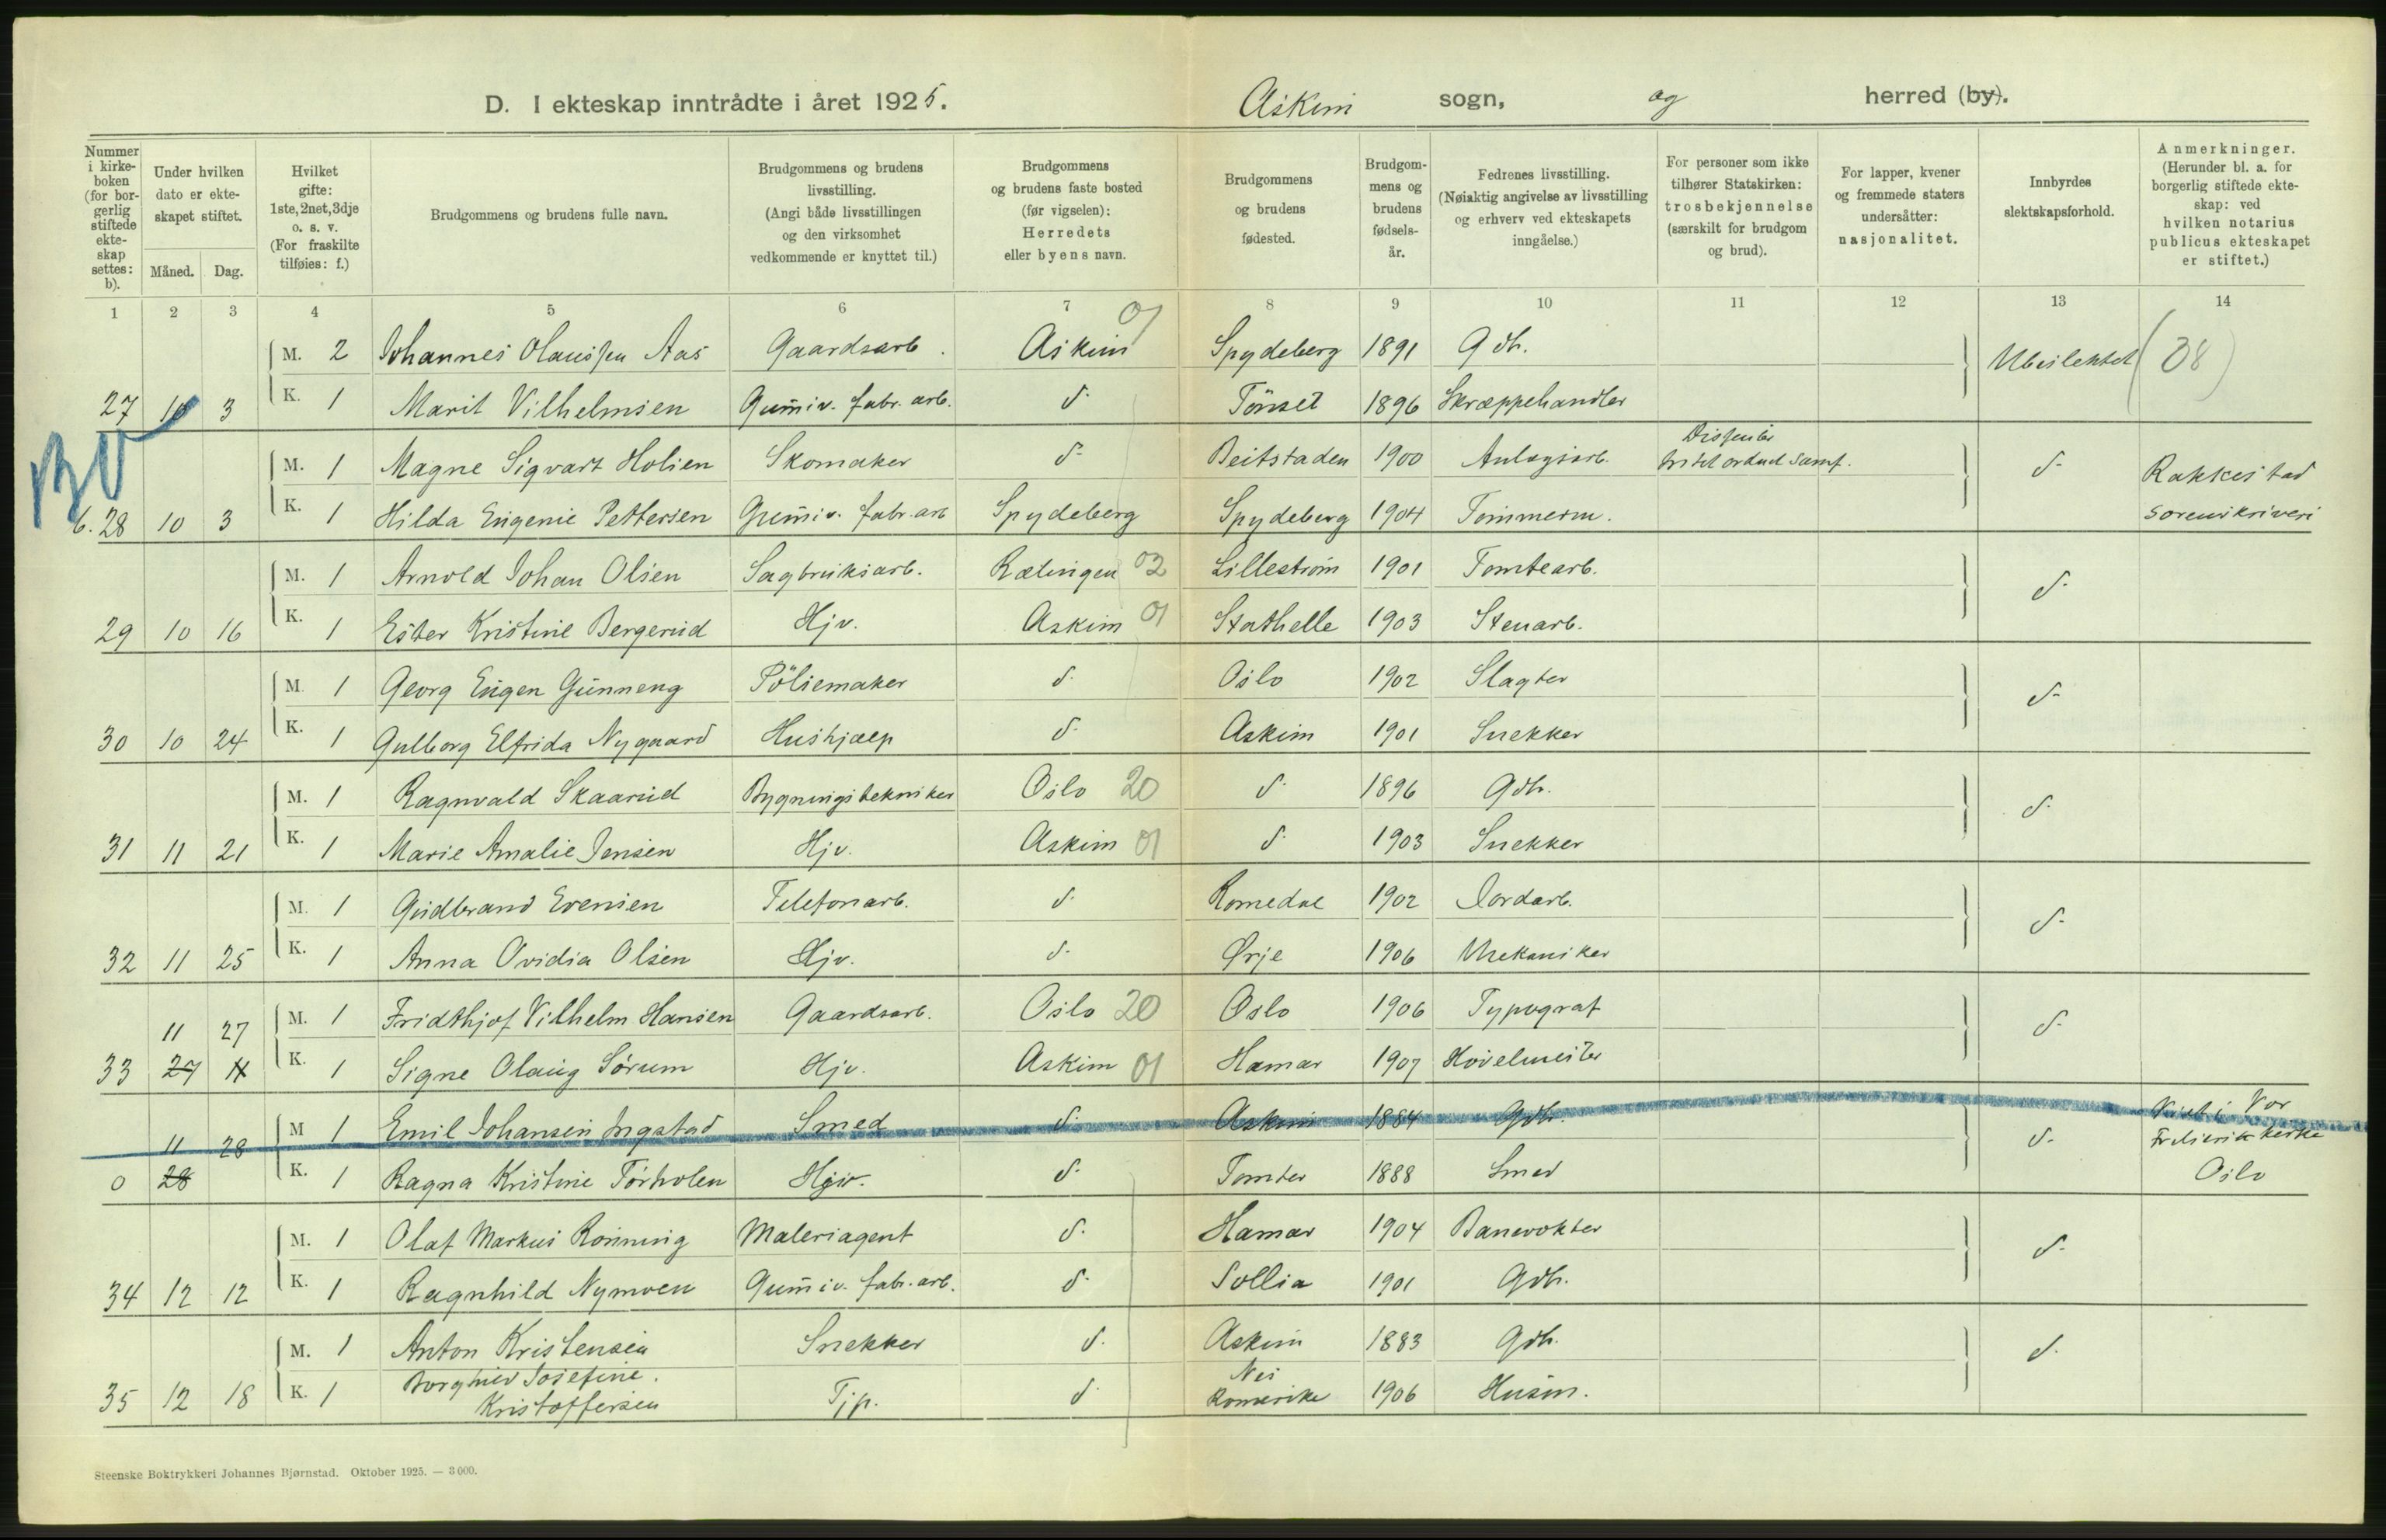 D. I ekteskap inntrådte i året 1925. Askim sogn, og herred (by).
Nummer i kirkeboken (for borgerlig stiftede ekteskap settes: b).
Under hvilken dato er ekteskapet stiftet.
Måned. Dag.
Hvilket gifte: 1ste, 2net, 3dje o. s. v. (For fraskilte tilføies: f.)
Brudgommens og brudens fulle navn.
Brudgommens og brudens livsstilling. (Angi både livsstillingen og den virksomhet vedkommende er knyttet til.)
Brudgommens og brudens faste bosted (før vigselen): Herredets eller byens navn.
Brudgommens og brudens fødested.
Brudgommens og brudens fødselsår.
Fedrenes livsstilling. (Nøiaktig angivelse av livsstilling og erhverv ved ekteskapets inngåelse.)
For personer som ikke tilhører Statskirken: trosbekjennelse (særskilt for brudgom og brud).
For lapper, kvener og fremmede staters undersåtter: nasjonalitet.
Innbyrdes slektskapsforhold.
Anmerkninger. (Herunder bl. a. for borgerlig stiftede ekteskap: ved hvilken notarius publicus ekteskapet er stiftet.)
1 2 3 4 5 6 7 8 9 10 11 12 13 14
M. 2 Johannes Olaussen Aas Gaardsarb. Askim 01 Spydeberg 1891 Gdb. Ubeslektet (38)
27 10 3 K. 1 Marit Vilhelmsen Gumiv. fabr. arb. d. Tönset 1896 Skræppehandler
M. 1 Magne Sigvart Holien Skomaker d. Beitstaden 1900 Anlægsarb. Dissenter d. Rakkestad
b. 28 10 3 K. 1 Hilda Eugenie Pettersen Gumiv. fabr. arb Spydeberg Spydeberg 1904 Tømmerm. sorenskriveri
M. 1 Arnold Johan Olsen Sagbruksarb. Rælingen 02 Lillestrøm 1901 Tomtearb. d.
29 10 16 K. 1 Ester Kristine Bergerud Hjv. Askim 01 Stathelle 1903 Stenarb.
M. 1 Georg Eugen Gunneng Pölsemaker d. Oslo 1902 Slagter d.
30 10 24 K. 1 Gulborg Elfrida Nygaard Hushjælp d. Askim 1901 Snekker
M. 1 Ragnvald Skaarud Bygningstekniker Oslo 20 d. 1896 Gdb. d.
31 11 21 K. 1 Marie Amalie Jensen Hjv. Askim 01 d. 1903 Snekker
M. 1 Gudbrand Evensen Telefonarb. d. Romedal 1902 Jordarb. d.
32 11 25 K. 1 Anna Ovidia Olsen Hjv. d. Ørje 1906 Mekaniker
11 27 M. 1 Fridthjof Vilhelm Hansen Gaardsarb. Oslo 20 Oslo 1906 Typograf d.
33 27 11 K. 1 Signe Olaug Sørum Hjv. Askim 01 Hamar 1907 Høvelmester
11 28 M 1 Emil Johansen Ingstad Smed d. Askim 1884 Gdb. d. Viet i Vor Frelsers kirke
0 28 K. 1 Ragna Kristine Törholen Hjv. d. Tomter 1888 Smed Oslo
M. 1 Olaf Markus Rönning Maleriagent d. Hamar 1904 Banevokter d.
34 12 12 K. 1 Ragnhild Nymoen Gumiv. fabr. arb. d. Sollia 1901 Gdb.
M. 1 Anton Kristensen Snekker d. Askim 1883 Gdb. d.
35 12 18 K. 1 Borghild Josefine Kristoffersen Tjp. d. Nes Romerike 1906 Husm.
Steenske Boktrykkeri Johannes Bjørnstad. Oktober 1925. — 3000.